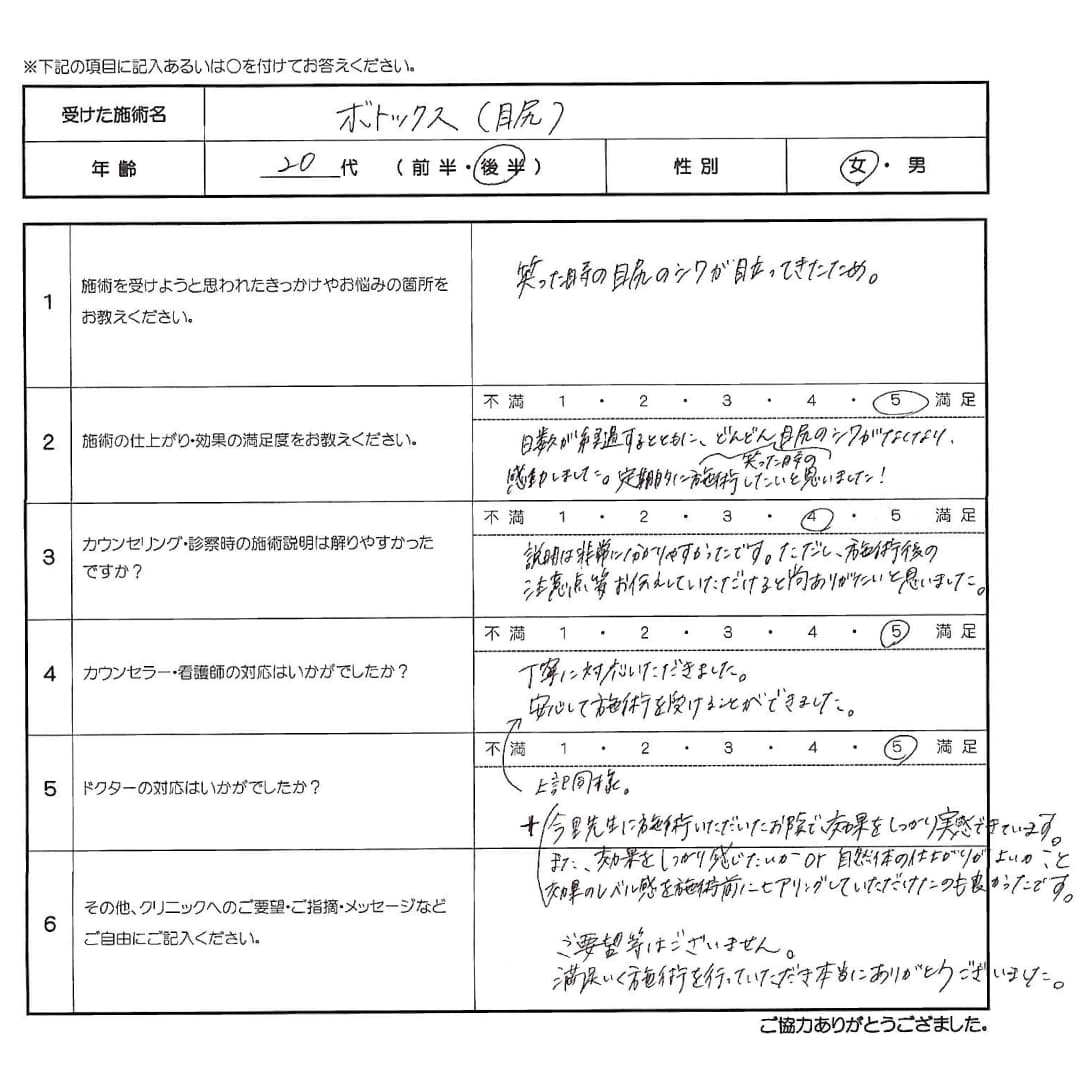 ※下記の項目に記入あるいは〇を付けてお答えください。
受けた施術名 ボトックス(目尻)
年齢 20代 (前半・後半) 性別 女・男
1 施術を受けようと思われたきっかけやお悩みの箇所を
お教えください。
笑った時の目尻のシワが目立ってきたため。
2 施術の仕上がり・効果の満足度をお教えください。
不満 1・2・3・4・5 満足
日数が経過するとともに、どんどん目尻のシワがなくなり、
笑った時の
感動しました。定期的に施術したいと思いました!
3 カウンセリング・診察時の施術説明は解りやすかった
ですか?
不満 1・2・3・4・5 満足
説明は非常に分かりやすかったです。ただし、施術後の
注意点等お伝えしていただけると尚ありがたいと思いました。
4 カウンセラー・看護師の対応はいかがでしたか?
不満 1・2・3・4・5 満足
丁寧に対応いただきました。
安心して施術を受けることができました。
5 ドクターの対応はいかがでしたか?
不満 1・2・3・4・5 満足
上記同様。
+今里先生に施術いただいたお陰で、効果をしっかり実感できています。
また、効果をしっかり感じたいか or 自然体の仕上がりがよいかこと
効果のレベル感を施術前にヒアリングしていただけたのも良かったです。
6 その他、クリニックへのご要望・ご指摘・メッセージなど
ご自由にご記入ください。
ご要望等はございません。
満足いく施術を行っていただき本当にありがとうございました。
ご協力ありがとうござました。